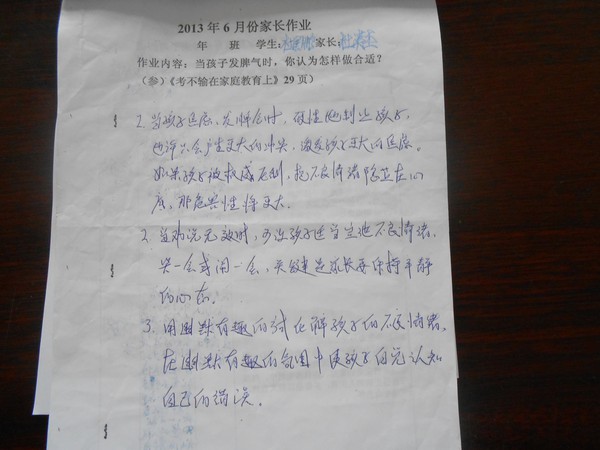 2013年6月份家长作业
年 班 学生: 家长:
作业内容:当孩子发脾气时,你认为怎样做合适?
(参)《考不输在家庭教育上》29页)
2. 当孩子任性、发脾气时,硬性的制止孩子,
也许会产生更大的冲突,激起孩子更大的反应。
如果孩子被权威压制,把不良情绪隐藏在心
底,那危害性将更大。
2. 当劝说无效时,可让孩子适当宣泄不良情绪,
哭一会或闹一会,关键是家长要保持平静
的心态。
3. 用幽默有趣的 化解孩子的不良情绪,
在幽默有趣的氛围中使孩子 认知
自己的错误。